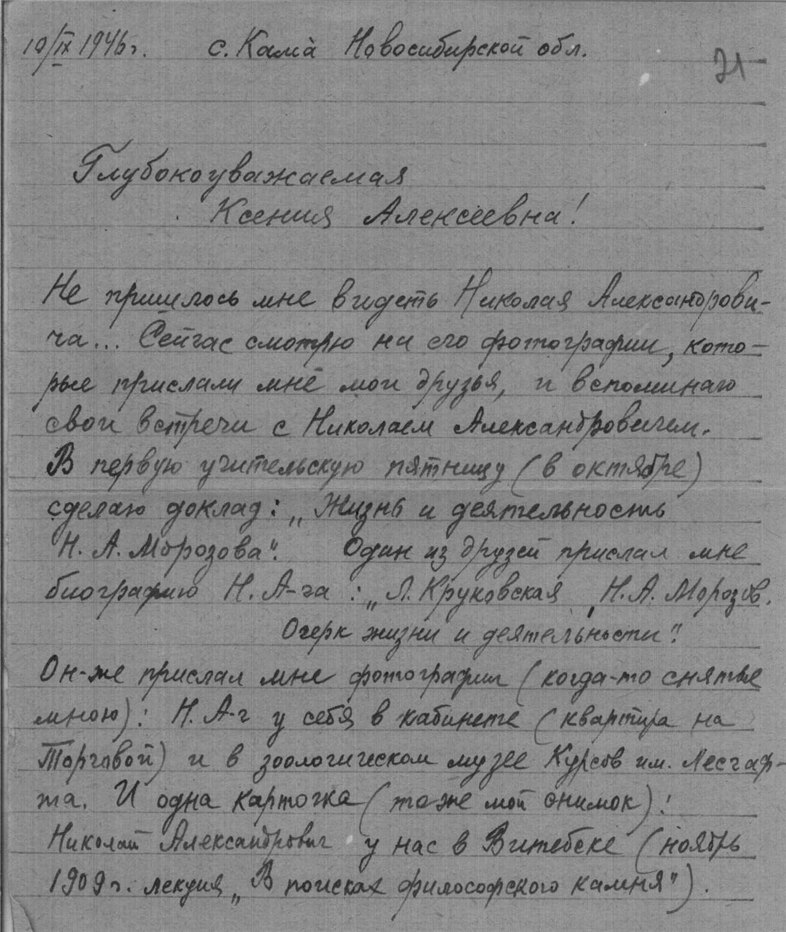 10/IX 1946 г. с. Кама Новосибирской обл.
21
Глубокоуважаемая
Ксения Алексеевна!
Не пришлось мне видеть Николая Александрови-
ча... Сейчас смотрю на его фотографии, кото-
рые прислали мне мои друзья, и вспоминаю
свои встречи с Николаем Александровичем.
В первую учительскую пятницу (в октябре)
сделаю доклад: „Жизнь и деятельность
Н. А. Морозова". Один из друзей прислал мне
биографию Н. А-ча: „Л. Круковская, Н. А. Морозов.
Очерк жизни и деятельности".
Он-же прислал мне фотографии (когда-то снятые
мною): Н. А-ч у себя в кабинете (квартира на
Торговой) и в зоологическом музее Курсов им. Лесгаф-
та. И одна карточка (тоже мой снимок):
Николай Александрович у нас в Витебске (ноябрь
1909 г. лекция „В поисках философского камня").